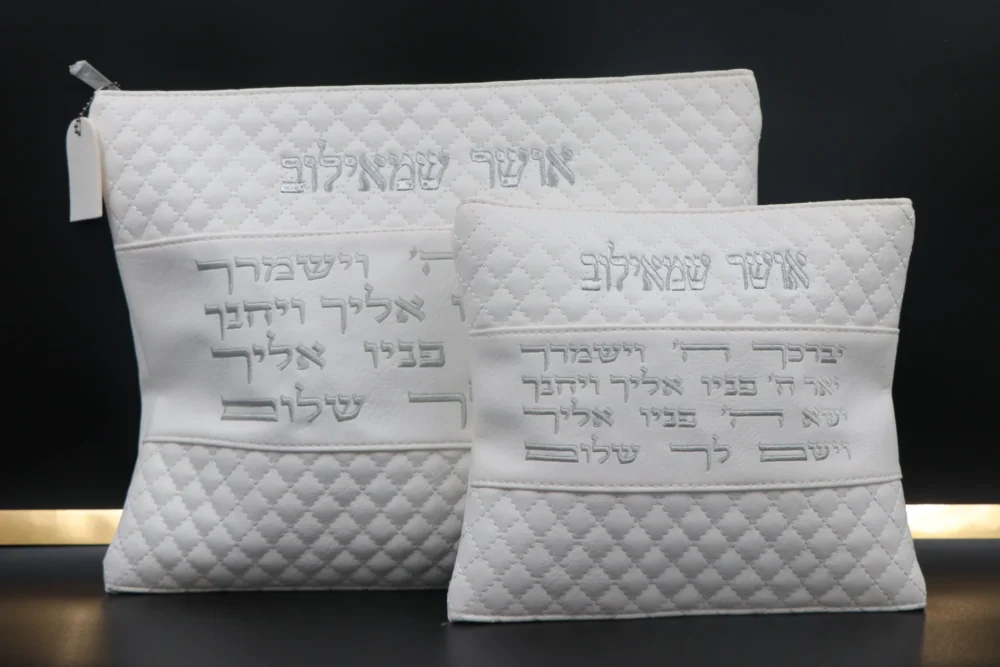 אושר שמאילוב
ה' וישמרך
אליך ויחנך
פניו אליך
ך שלום
אושר שמאילוב
יברכך ה' וישמרך
יאר ה' פניו אליך ויחנך
ישא ה' פניו אליך
וישם לך שלום